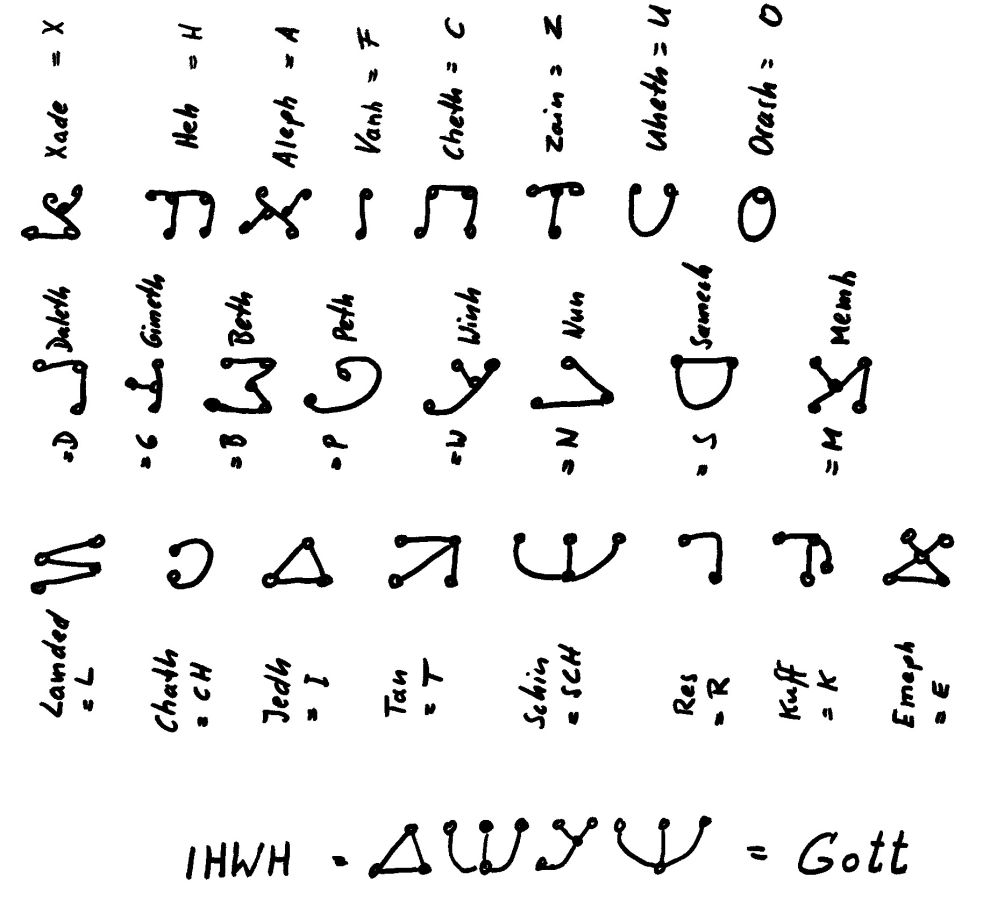 Xade = X
Heh = H
Aleph = A
Vanh = F
Cheth = C
Zain = Z
Uheth = U
Orash = O
Daleth
= D
Gimeth
= G
Beth
= B
Peth
= P
Winh
= W
Nun
= N
Samech
= S
Memh
= M
Lamded
= L
Chath
= CH
Jedh
= I
Tan
= T
Schin
= SCH
Res
= R
Kuff
= K
Emeph
= E
IHWH = = Gott